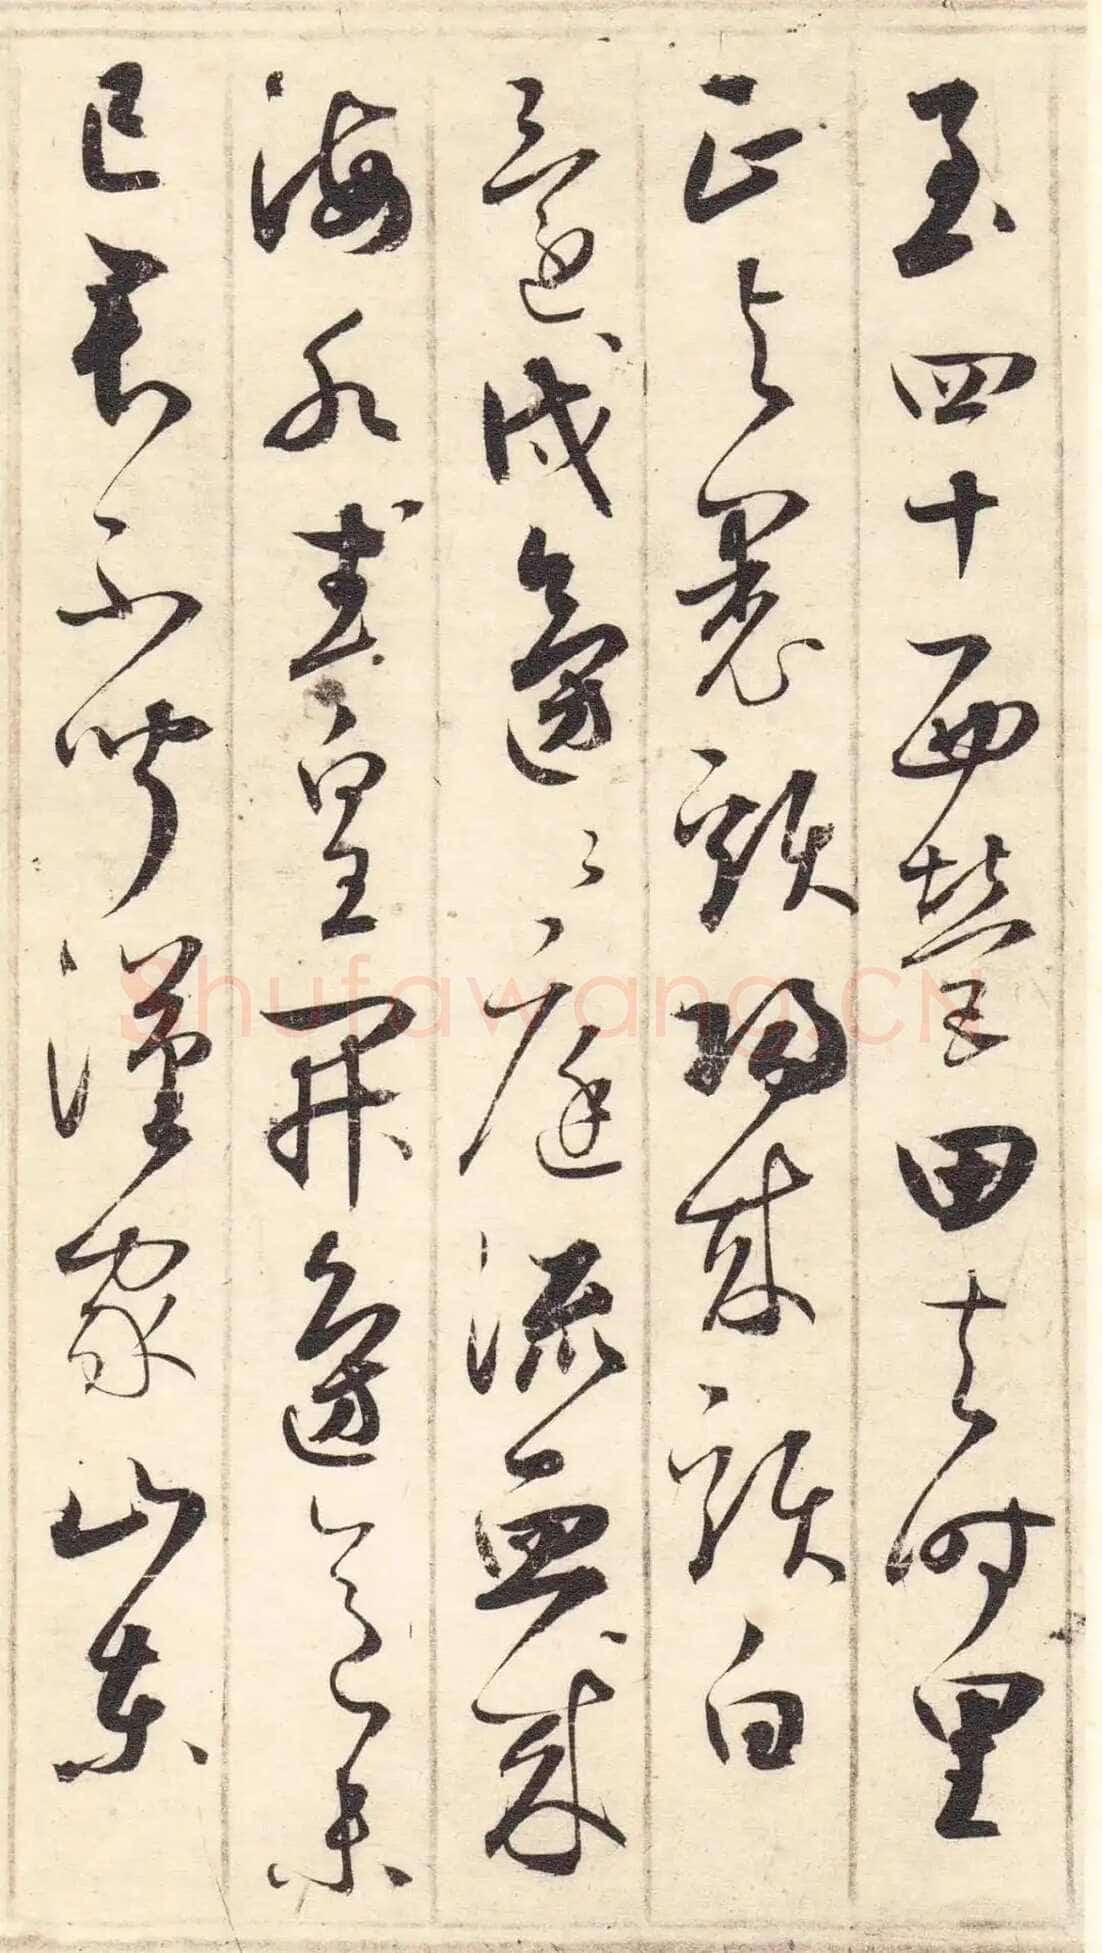 至四十西營田去時里
正与裹頭歸来頭白
還戍邊〻庭流血成
海水武皇開邊意未
已君不聞漢家山東
Shufawang.CN